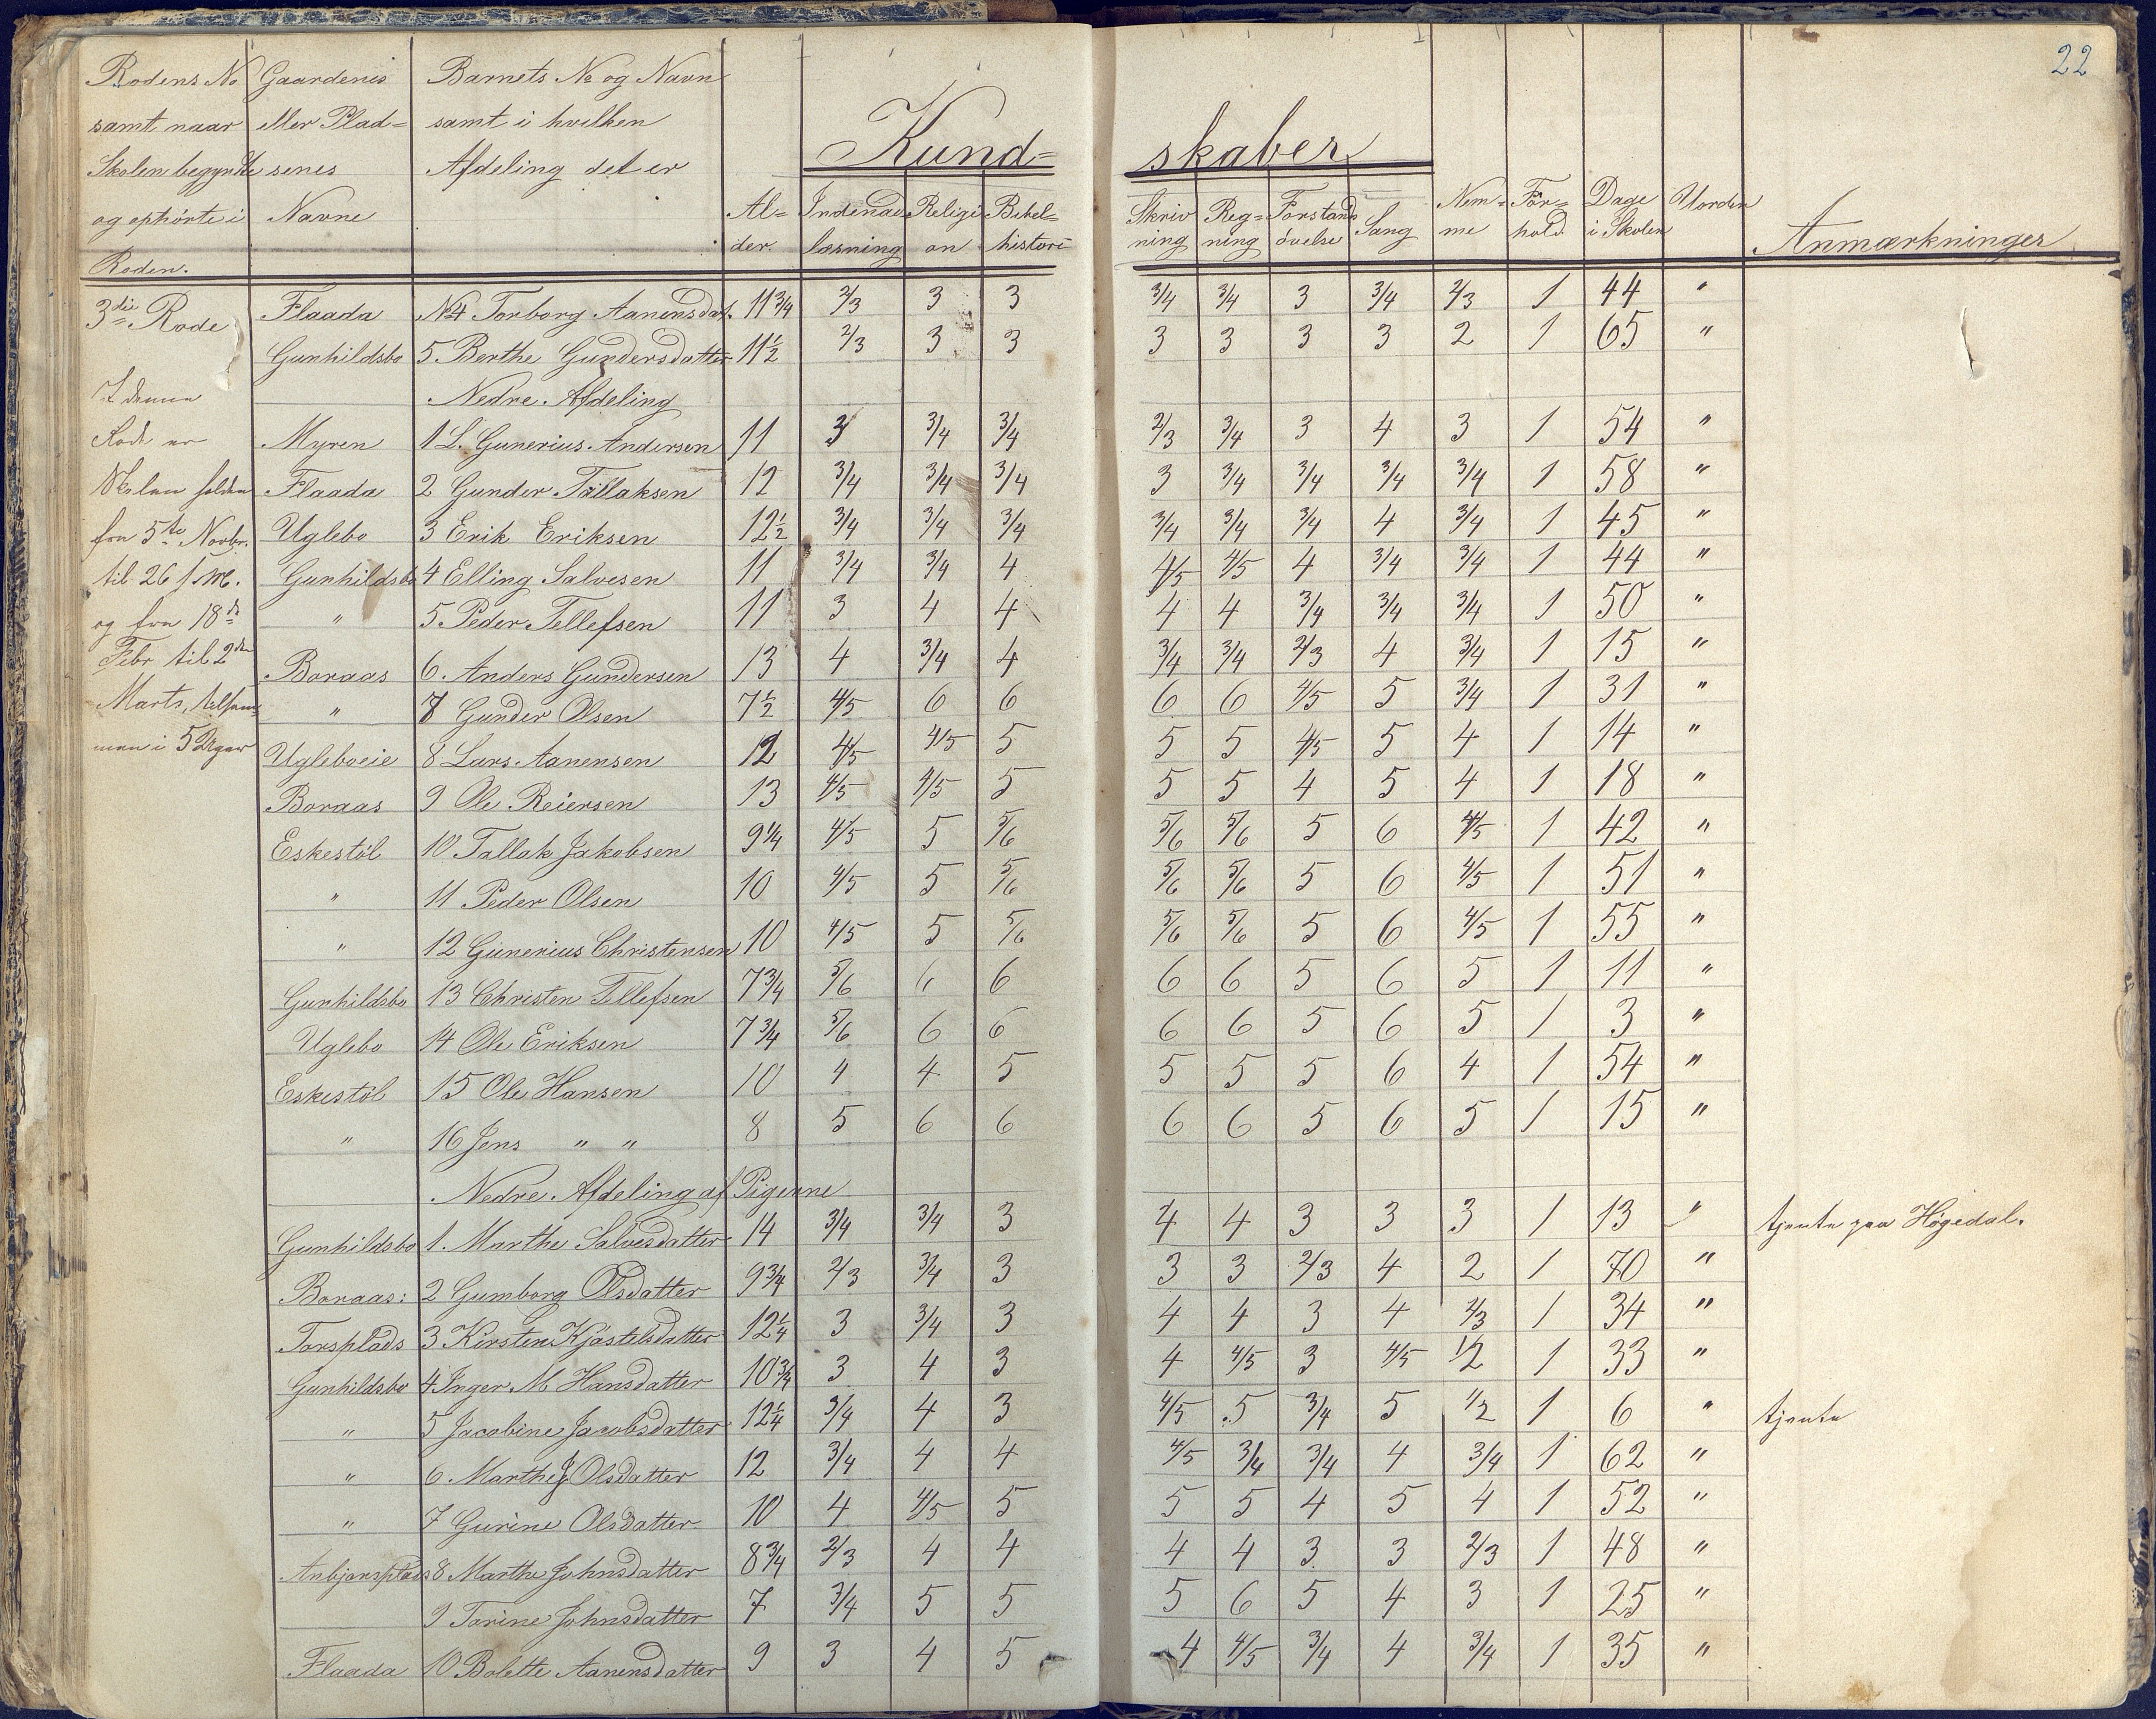 22
Rodens No Gaardenes Barnets No og Navn
samt naar eller Plad= samt i hvilken
Skolen begyndte senes Afdeling det er
og ophörte i Navne
Roden.
Kund= skaber
Al= der. Indenad læsning Religi on Bibel= histori Skriv ning Reg= ning Forstands övelse Sang Nem= me For= hold Dage i Skolen Uorden Anmærkninger
3die Rode
I denne
Rode er
Skolen holden
fra 5te Novbr.
til 26 f. M.
og fra 18de
Febr til 2den
Marts, tilsam=
men i 5 Uger
Flaada No 4 Torborg Aanensdat. 11 3/4 2/3 3 3 3/4 3/4 3 3/4 2/3 1 44 "
Gunhildsbo 5 Berthe Gundersdatter 11 1/2 2/3 3 3 3 3 3 3 2 1 65 "
Nedre Afdeling
Myren 1 L. Gunerius Andersen 11 3 3/4 3/4 2/3 3/4 3 4 3 1 54 "
Flaada 2 Gunder Tallaksen 12 3/4 3/4 3/4 3 3/4 3/4 3/4 3/4 1 58 "
Uglebo 3 Erik Eriksen 12 1/2 3/4 3/4 3/4 3/4 3/4 3/4 4 3/4 1 45 "
Gunhildsbo 4 Elling Salvesen 11 3/4 3/4 4 4/5 4/5 4 3/4 3/4 1 44 "
" 5 Peder Tellefsen 11 3 4 4 4 4 3/4 3/4 3/4 1 50 "
Boraas 6. Anders Gundersen 13 4 3/4 4 3/4 3/4 2/3 4 3/4 1 15 "
" 7 Gunder Olsen 7 1/2 4/5 6 6 6 6 4/5 5 3/4 1 31 "
Ugleboeie 8 Lars Aanensen 12 4/5 4/5 5 5 5 4/5 5 4 1 14 "
Boraas 9 Ole Reiersen 13 4/5 4/5 5 5 5 4 5 4 1 18 "
Eskestöl 10 Tallak Jakobsen 9 1/4 4/5 5 5/6 5/6 5/6 5 6 4/5 1 42 "
" 11 Peder Olsen 10 4/5 5 5/6 5/6 5/6 5 6 4/5 1 51 "
" 12 Gunerius Christensen 10 4/5 5 5/6 5/6 5/6 5 6 4/5 1 55 "
Gunhildsbo 13 Christen Tellefsen 7 3/4 5/6 6 6 6 6 5 6 5 1 11 "
Uglebo 14 Ole Eriksen 7 3/4 5/6 6 6 6 6 5 6 5 1 3 "
Eskestöl 15 Ole Hansen 10 4 4 5 5 5 5 6 4 1 54 "
" 16 Jens " " 8 5 6 6 6 6 5 6 5 1 15 "
Nedre Afdeling af Pigerne
Gunhildsbo 1. Marthe Salvesdatter 14 3/4 3/4 3 4 4 3 3 3 1 13 " tjente paa Högedal.
Boraas: 2 Gumborg Olsdatter 9 3/4 2/3 3/4 3 3 3 2/3 4 2 1 70 "
Torsplads 3 Kirsten Kjöstelsdatter 12 1/4 3 3/4 3 4 4 3 4 2/3 1 34 "
Gunhildsbo 4 Inger M Hansdatter 10 3/4 3 4 3 4 4/5 3 4/5 1/2 1 33 "
" 5 Jacobine Jacobsdatter 12 1/4 3/4 4 3 4/5 5 3/4 5 1/2 1 6 " tjente
" 6. Marthe J Olsdatter 12 3/4 4 4 4/5 3/4 3/4 4 3/4 1 62 "
" 7 Gurine Olsdatter 10 4 4/5 5 5 5 4 5 4 1 52 "
Anbjørsplads 8 Marthe Johnsdatter 8 3/4 2/3 4 4 4 4 3 3 2/3 1 48 "
9 Torine Johnsdatter 7 3/4 5 5 5 6 5 4 3 1 25 "
Flaada 10 Bolette Aanensdatter 9 3 4 5 4 4/5 3/4 4 3/4 1 35 "